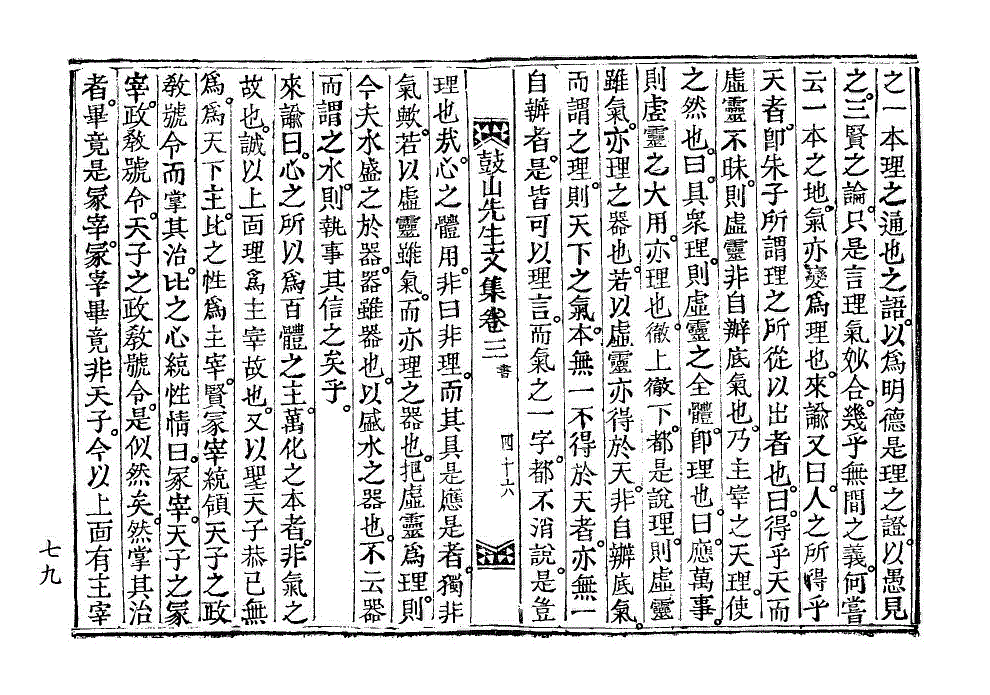 之一本理之通也之語。以爲明德是理之證。以愚見
之。三賢之論。只是言理氣妙合。幾乎無間之義。何嘗
云一本之地。氣亦變爲理也。來諭又曰。人之所得乎
天者。卽朱子所謂理之所從以出者也。曰。得乎天而
虛靈不昧。則虛靈非自辦底氣也。乃主宰之天理使
之然也。曰。具衆理。則虛靈之全體。卽理也。曰。應萬事。
則虛靈之大用。亦理也。徹上徹下。都是說理。則虛靈
雖氣。亦理之器也。若以虛靈亦得於天。非自辦底氣。
而謂之理。則天下之氣。本無一不得於天者。亦無一
自辦者。是皆可以理言。而氣之一字。都不消說。是豈
鼓山先生文集卷三 書 四十六
理也哉。心之體用。非曰非理。而其具是應是者。獨非
氣歟。若以虛靈雖氣。而亦理之器也。把虛靈爲理。則
今夫水盛之於器。器雖器也。以盛水之器也。不云器
而謂之水。則執事其信之矣乎。
來諭曰。心之所以爲百體之主。萬化之本者。非氣之
故也。誠以上面理爲主宰故也。又以聖天子恭己無
爲。爲天下主。比之性爲主宰。賢冢宰統領天子之政
敎號令而掌其治。比之心統性情曰。冢宰。天子之冢
宰。政敎號令。天子之政敎號令。是似然矣。然掌其治
者。畢竟是冢宰。冢宰畢竟非天子。今以上面有主宰
七九